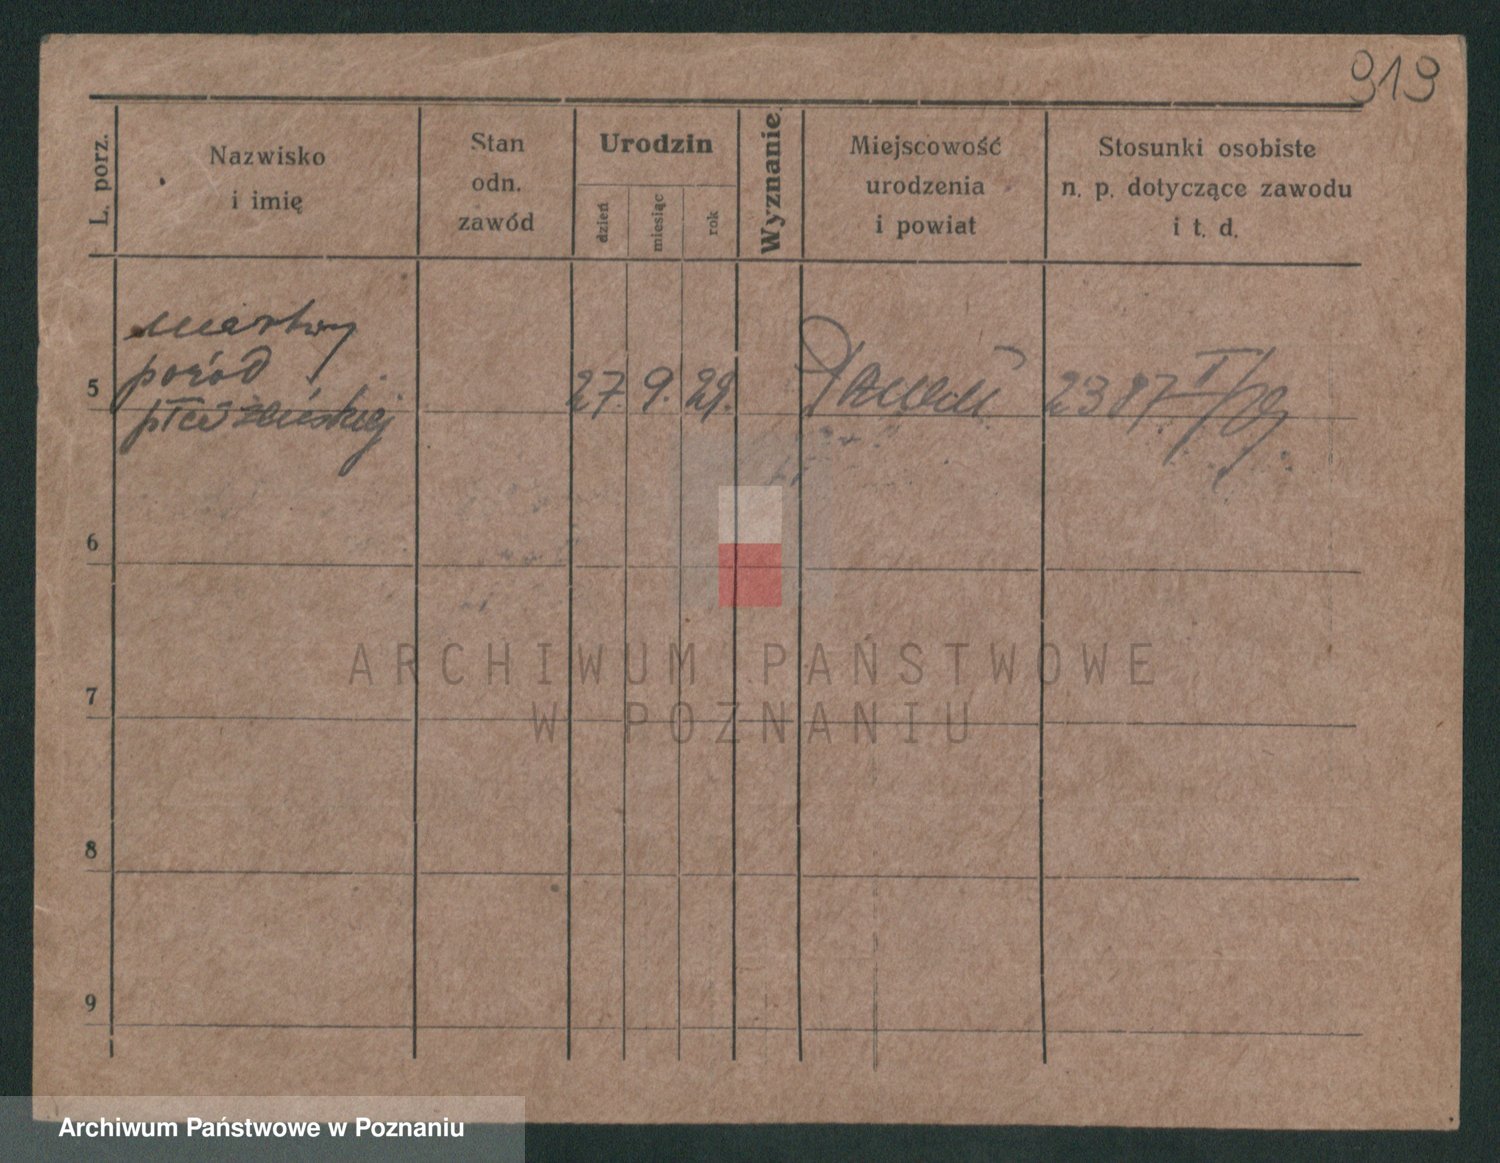 919
L. porz.
Nazwisko
i imię
Stan
odn.
zawód
Urodzin
dzień
miesiąc
rok
Wyznanie
Miejscowość
urodzenia
i powiat
Stosunki osobiste
n. p. dotyczące zawodu
i t. d.
martwy
poród
5
płci żeńskiej
27. 9. 29.
Poznań
2387
6
7
8
9
ARCHIWUM PAŃSTWOWE
W POZNANIU
Archiwum Państwowe w Poznaniu